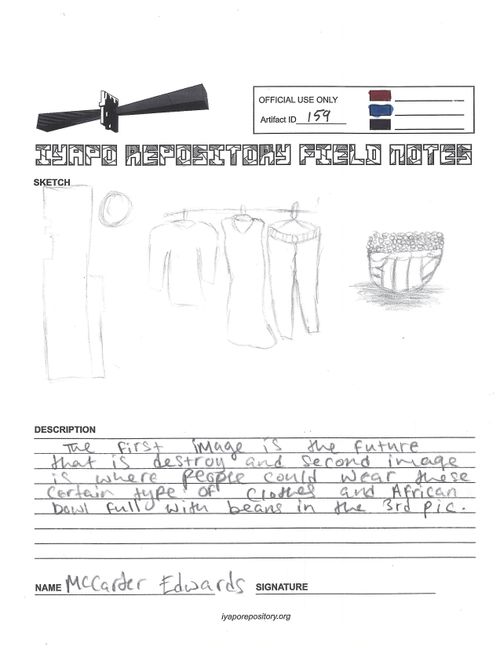 OFFICIAL USE ONLY
Artifact ID 159
IYAPO REPOSITORY FIELD NOTES
SKETCH
DESCRIPTION
The first image is the future
that is destroy and second image
is where people could wear these
certain type of clothes and African
bowl full with beans in the 3rd pic.
NAME McCarter Edwards SIGNATURE
iyaporepository.org